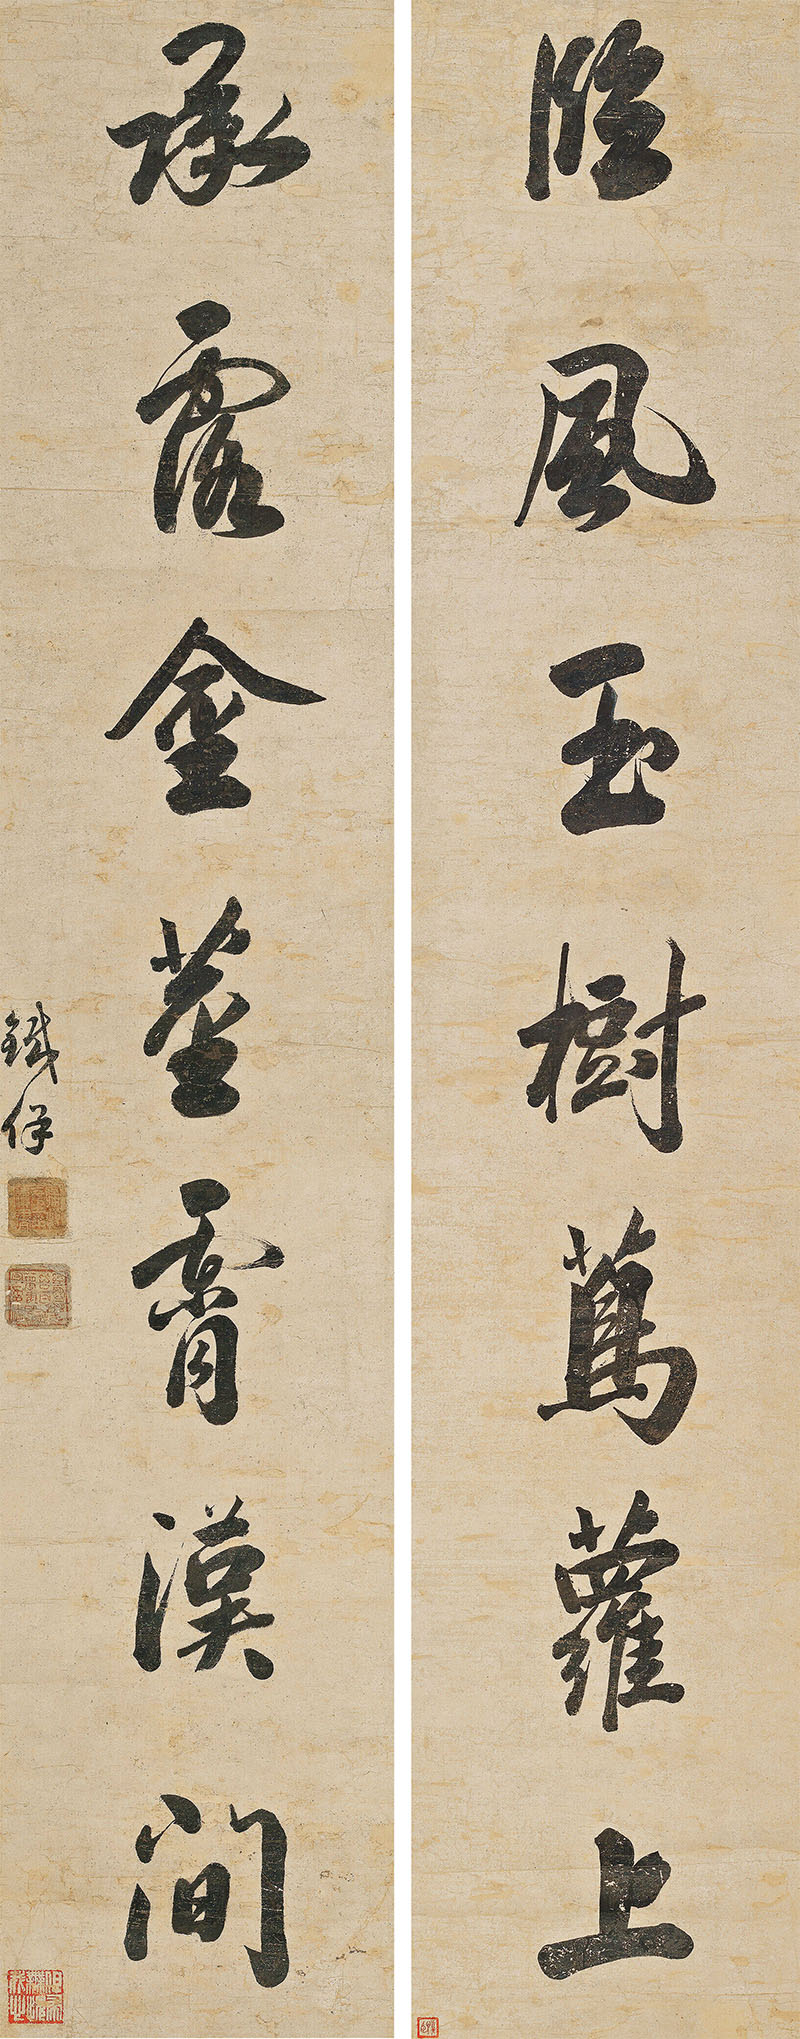 臨風玉樹蔦蘿上
承露金莖霄漢間
鐵保